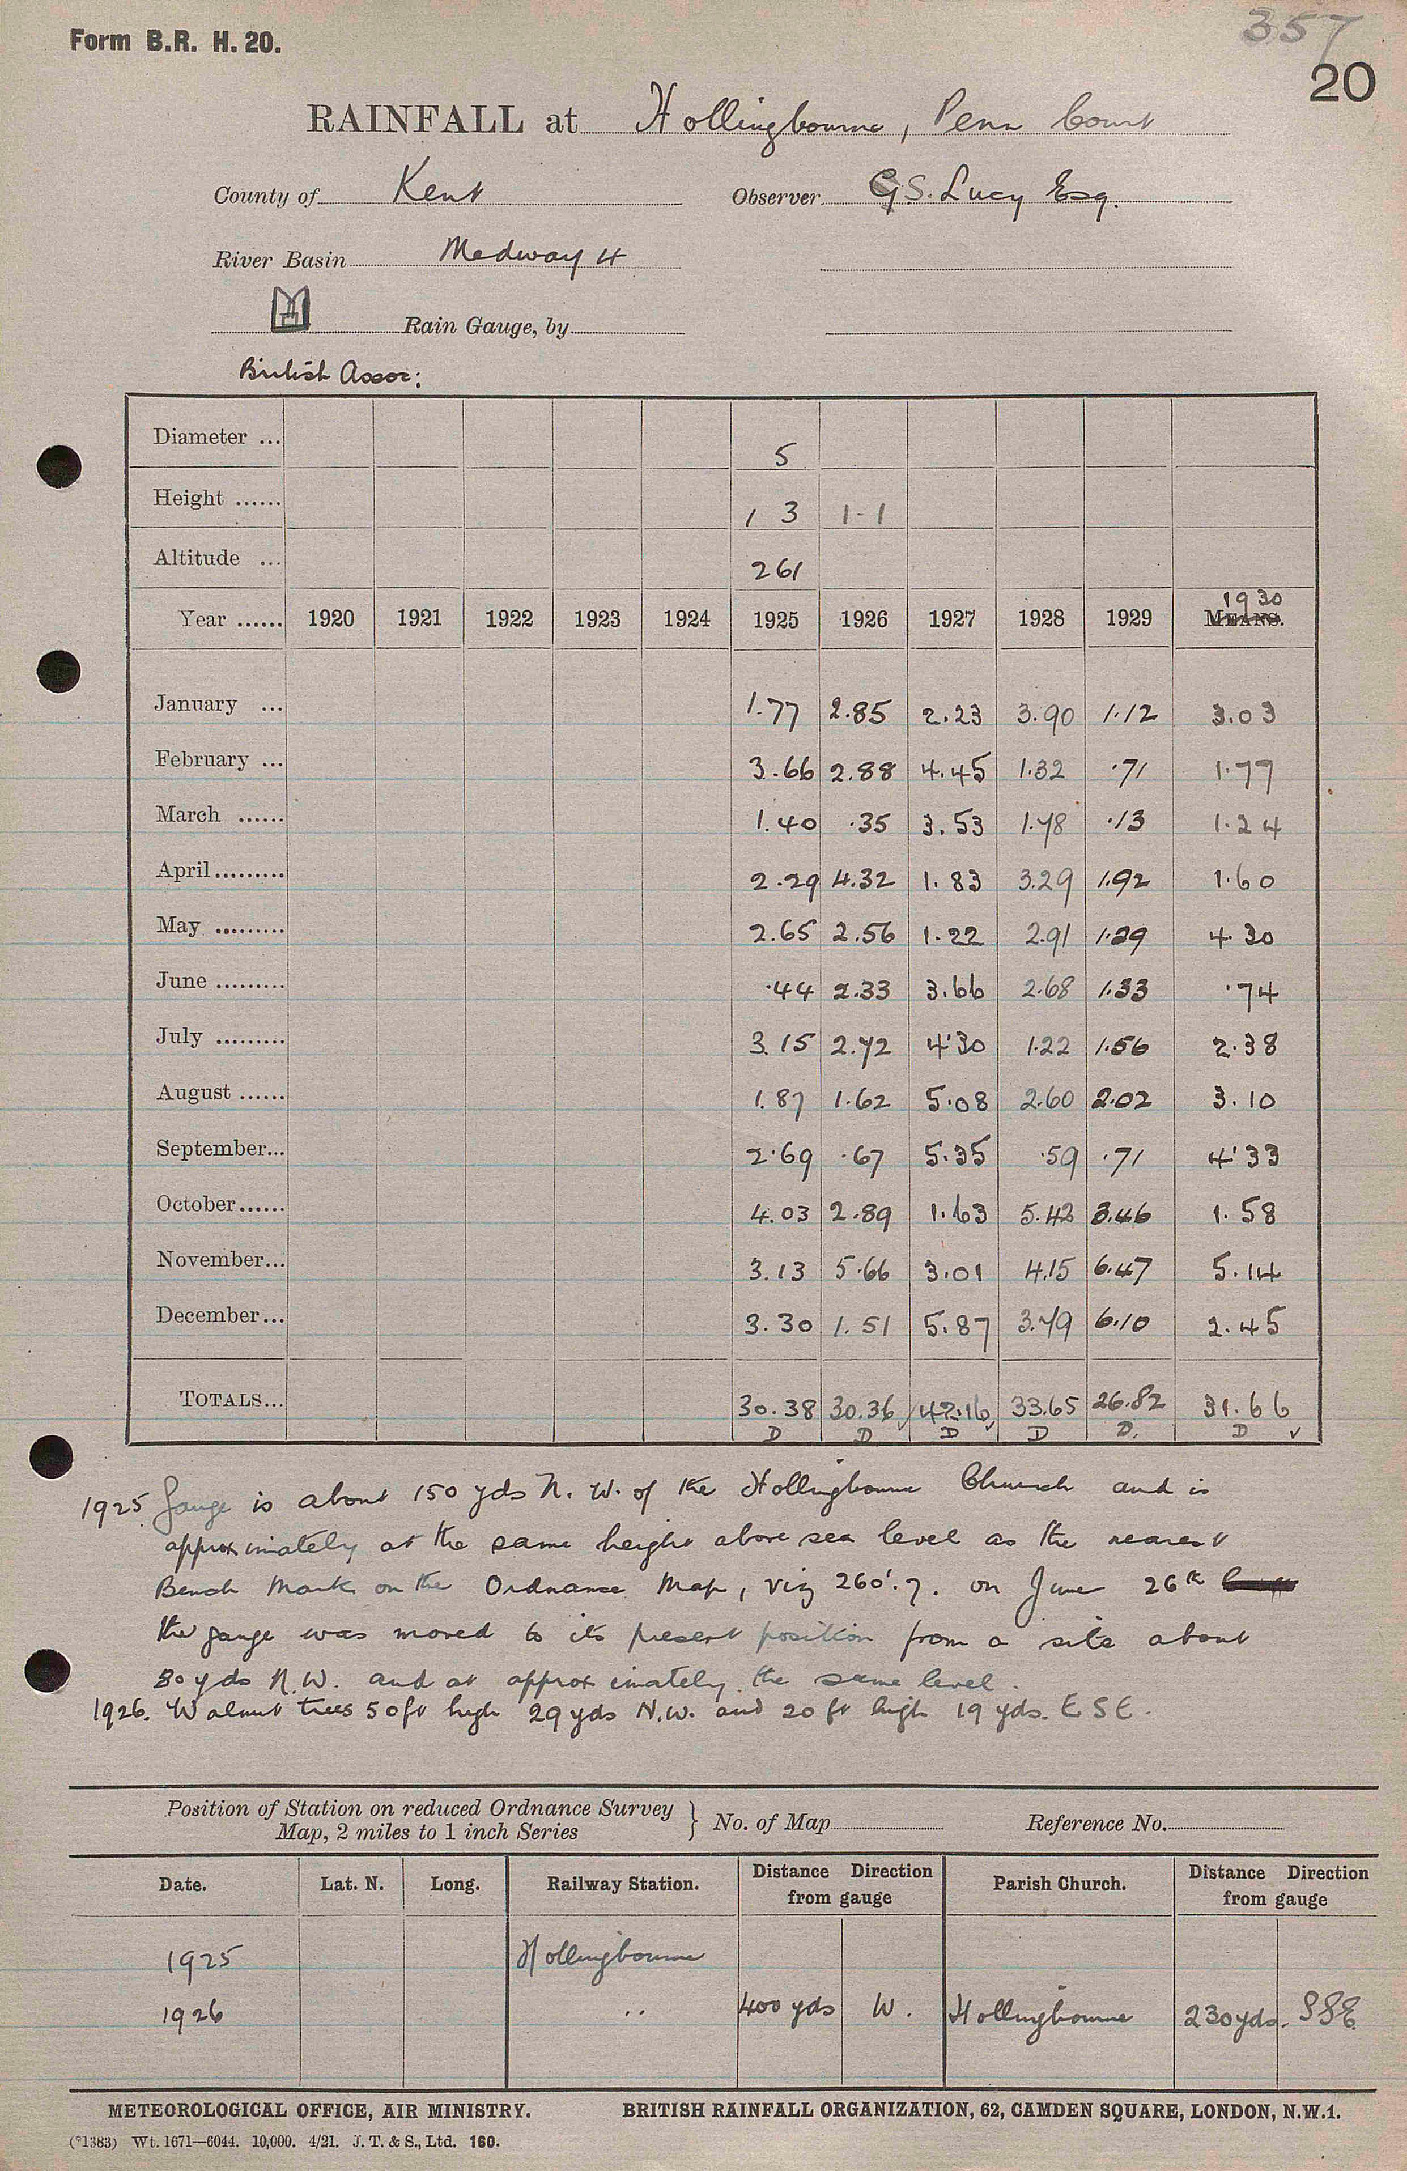 357
Form B.R. H. 20.
20
RAINFALL at Hollingbourne, Penn Court
County of Kent Observer G.S. Lucy Esq.
River Basin Medway 4
Rain Gauge, by
British Assoc:
Diameter ... 5
Height ...... 1 3 1-1
Altitude ... 261
1930
Year ...... 1920 1921 1922 1923 1924 1925 1926 1927 1928 1929 MEANS.
January ... 1.77 2.85 2.23 3.90 1.12 3.03
February ... 3.66 2.88 4.45 1.32 .71 1.77
March ...... 1.40 .35 3.53 1.78 .13 1.24
April ......... 2.29 4.32 1.83 3.29 1.92 1.60
May ......... 2.65 2.56 1.22 2.91 1.29 4.30
June ......... .44 2.33 3.66 2.68 1.33 .74
July ......... 3.15 2.72 4.30 1.22 1.56 2.38
August ...... 1.87 1.62 5.08 2.60 2.02 3.10
September... 2.69 .67 5.35 .59 .71 4.33
October...... 4.03 2.89 1.63 5.42 3.46 1.58
November... 3.13 5.66 3.01 4.15 6.47 5.14
December... 3.30 1.51 5.87 3.79 6.10 2.45
TOTALS... 30.38 30.36 42.16 33.65 26.82 31.66
D D D D D. D ✓
1925 Gauge is about 150 yds N. W. of the Hollingbourne Church and is
approximately at the same height above sea level as the nearest
Bench Mark on the Ordnance Map, viz 260'.7. on June 26th
the gauge was moved to its present position from a site about
30 yds N.W. and at approximately the same level.
1926. Walnut trees 50ft high 29 yds N.W. and 20 ft high 19 yds. E S E.
Position of Station on reduced Ordnance Survey
Map, 2 miles to 1 inch Series } No. of Map Reference No.
Date. Lat. N. Long. Railway Station. Distance Direction from gauge Parish Church. Distance Direction from gauge
1925 Hollingbourne
1926 " 400 yds W. Hollingbourne 230yds. SSE
METEOROLOGICAL OFFICE, AIR MINISTRY. BRITISH RAINFALL ORGANIZATION, 62, CAMDEN SQUARE, LONDON, N.W.1.
(*1383) Wt. 1671—6044. 10,000. 4/21. J. T. & S., Ltd. 160.